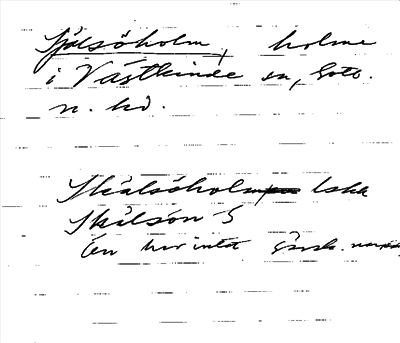 Själsöholm, holme
i Västkinde sn, Gotl.
n. hd.
Skälsöholm lska
Skälsön S
Ön har intet särsk. namn